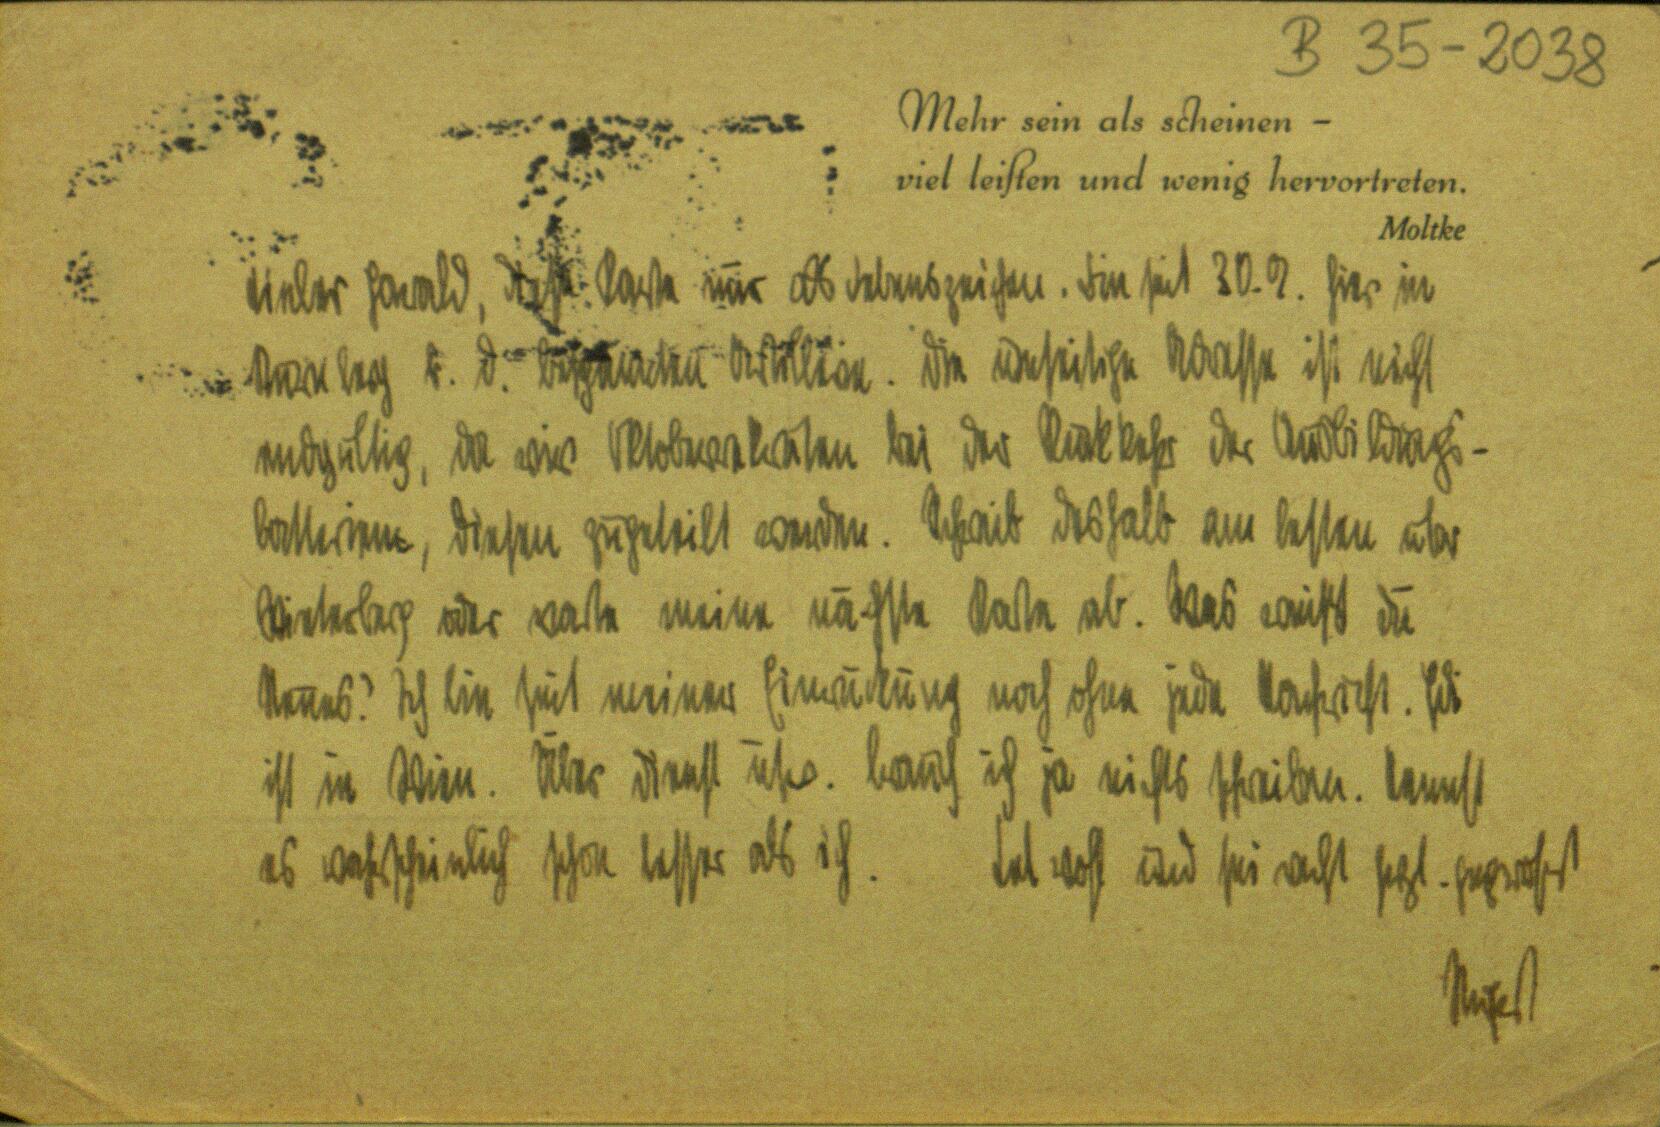 B 35-2038
Mehr sein als scheinen –
viel leisten und wenig hervortreten.
Moltke
Lieber Harald, diese Karte nur als Lebenszeichen. Bin seit 30.9. hier in
b. d. bespannten Artillerie. Die umseitige Adresse ist nicht
endgültig, da wir Oktoberrekruten bei der Rückkehr der Ausbildungs-
batterien, diesen zugeteilt werden. Schreib deshalb am besten über
Winterberg oder warte meine nächste Karte ab. Was weißt du
Neues? Ich bin seit meiner Einrückung noch ohne jede Nachricht. Edi
ist in Wien. Über Dienst usw. brauch ich ja nichts schreiben. Kennst
es wahrscheinlich schon besser als ich. Leb wohl und sei recht herzl. gegrüßt